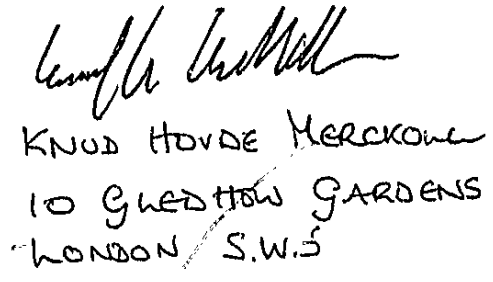 KNUD HOVDE MERCKOLL
10 GLEDHOW GARDENS
LONDON S.W.5